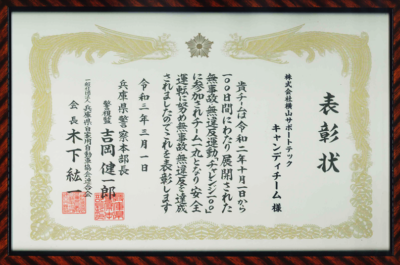 表彰状
株式会社横山サポートテック
キャンディチーム 様
貴チームは令和二年十月一日から
一〇〇日間にわたり展開された
無事故・無違反運動「チャレンジ一〇〇」
に参加されチーム一丸となり安全
運転に努め無事故・無違反を達成
されましたのでこれを表彰します
令和三年三月一日
兵庫県警察本部長
警視監 吉岡健一郎
一般社団法人 兵庫県自家用自動車協会連合会
会長 木下紘一